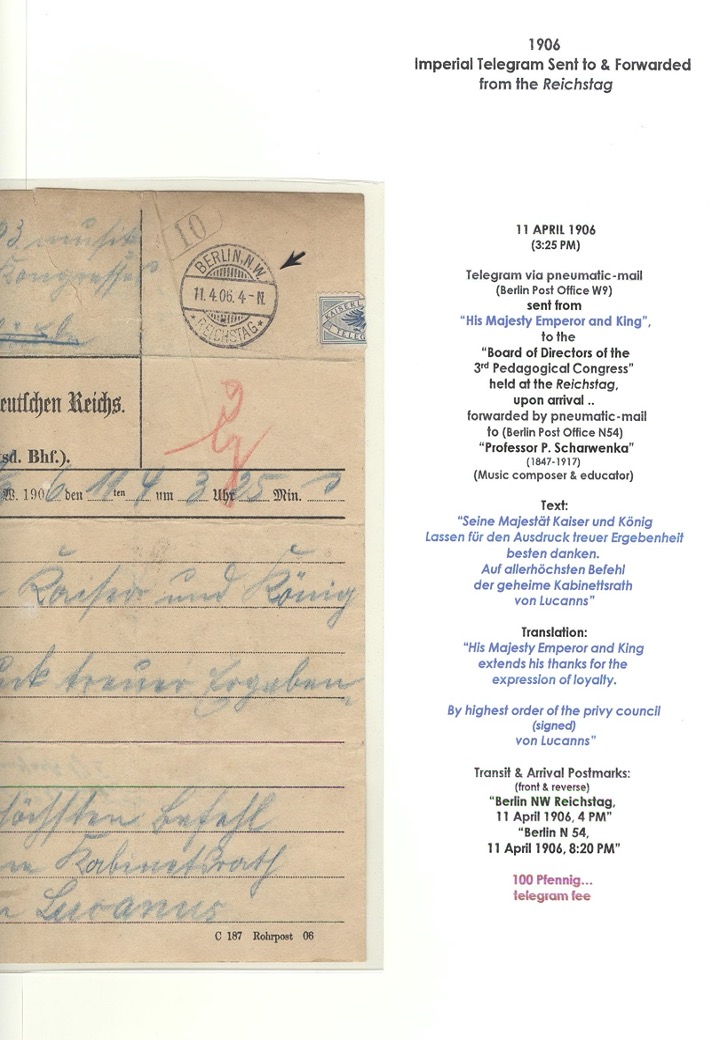 1906
Imperial Telegram Sent to & Forwarded
from the Reichstag
10
BERLIN, N.W.
11.4.06. 4-N.
REICHSTAG
Kongresses
KAISERL
TELEG
eutschen Reichs.
sd. Bhf.).
W. 1906 den 11 ten 4 um 3 Uhr 25 Min.
Kaiser und König
uck treuer Ergeben
höchsten Befehl
Kabinetsrath
Lucanus
C 187 Rohrpost 06
11 APRIL 1906
(3:25 PM)
Telegram via pneumatic-mail
(Berlin Post Office W9)
sent from
“His Majesty Emperor and King”,
to the
“Board of Directors of the
3rd Pedagogical Congress”
held at the Reichstag,
upon arrival ..
forwarded by pneumatic-mail
to (Berlin Post Office N54)
“Professor P. Scharwenka”
(1847-1917)
(Music composer & educator)
Text:
“Seine Majestät Kaiser und König
Lassen für den Ausdruck treuer Ergebenheit
besten danken.
Auf allerhöchsten Befehl
der geheime Kabinettsrath
von Lucanns”
Translation:
“His Majesty Emperor and King
extends his thanks for the
expression of loyalty.
By highest order of the privy council
(signed)
von Lucanns”
Transit & Arrival Postmarks:
(front & reverse)
“Berlin NW Reichstag,
11 April 1906, 4 PM”
“Berlin N 54,
11 April 1906, 8:20 PM”
100 Pfennig...
telegram fee